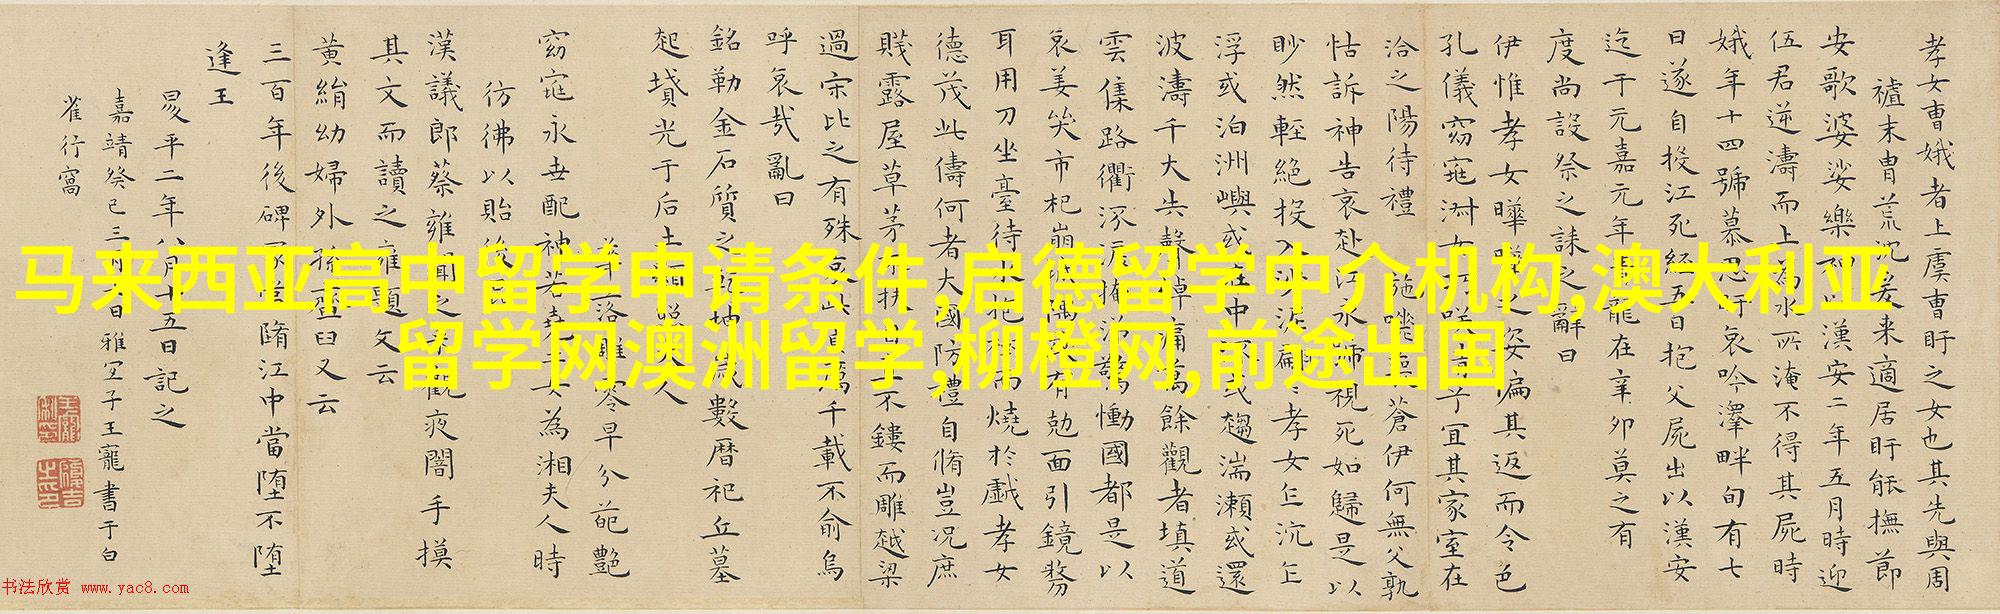 孝女曹娥者上虞曹盱之女也其先與周
禮末冑荒沈爰来適居盱能撫節
安歌婆娑樂神以漢安二年五月時迎
伍君逆濤而上為水所淹不得其屍時
娥年十四號慕思盱哀吟澤畔旬有七
日遂自投江死經五日抱父屍出以漢安
迄于元嘉元年青龍在辛卯莫之有
度尚設祭之誄之辭曰
伊惟孝女曄曄之姿偏其返而令色
孔儀窈窕淑女巧咲倩兮宜其家室在
洽之陽待禮 施嗟喪蒼伊何無父孰
怙訴神告哀赴江永號視死如歸是以
眇然輕絶投入沙泥翩孝女乍沉乍
浮或泊洲嶼或在中 或趨湍瀨或還
波濤千夫失聲悼痛萬餘觀者填道
雲集路衢泣淚掩涕驚慟國都是以
哀姜哭市杞崩城隅 有剋面引鏡剺
耳用刀坐臺待水抱樹而燒於戲孝女
德茂此儔何者大國防禮自脩豈況庶
賤露屋草茅不扶自直不鏤而雕越梁
過宋比之有殊哀此貞厲千載不俞烏
呼哀哉亂曰
銘勒金石質之乾坤歲數曆祀丘墓
起墳光于后土顯照夫人
葩落雖零早分葩艷
窈窕永世配神若堯二女為湘夫人時
彷彿以貽後
漢議郎蔡雍聞之来觀夜闇手摸
其文而讀之雍題文云
黃絹幼婦外孫齏臼又云
三百年後碑冢當墮江中當墮不墮
逢王
昇平二年八月十五日記之
嘉靖癸巳三月 日雅宜子王寵書于白
雀行窩
马来西亚高中留学申请条件,启德留学中介机构,澳大利亚
留学网澳洲留学,柳橙网,前途出国
书法欣赏 www.yac8.com